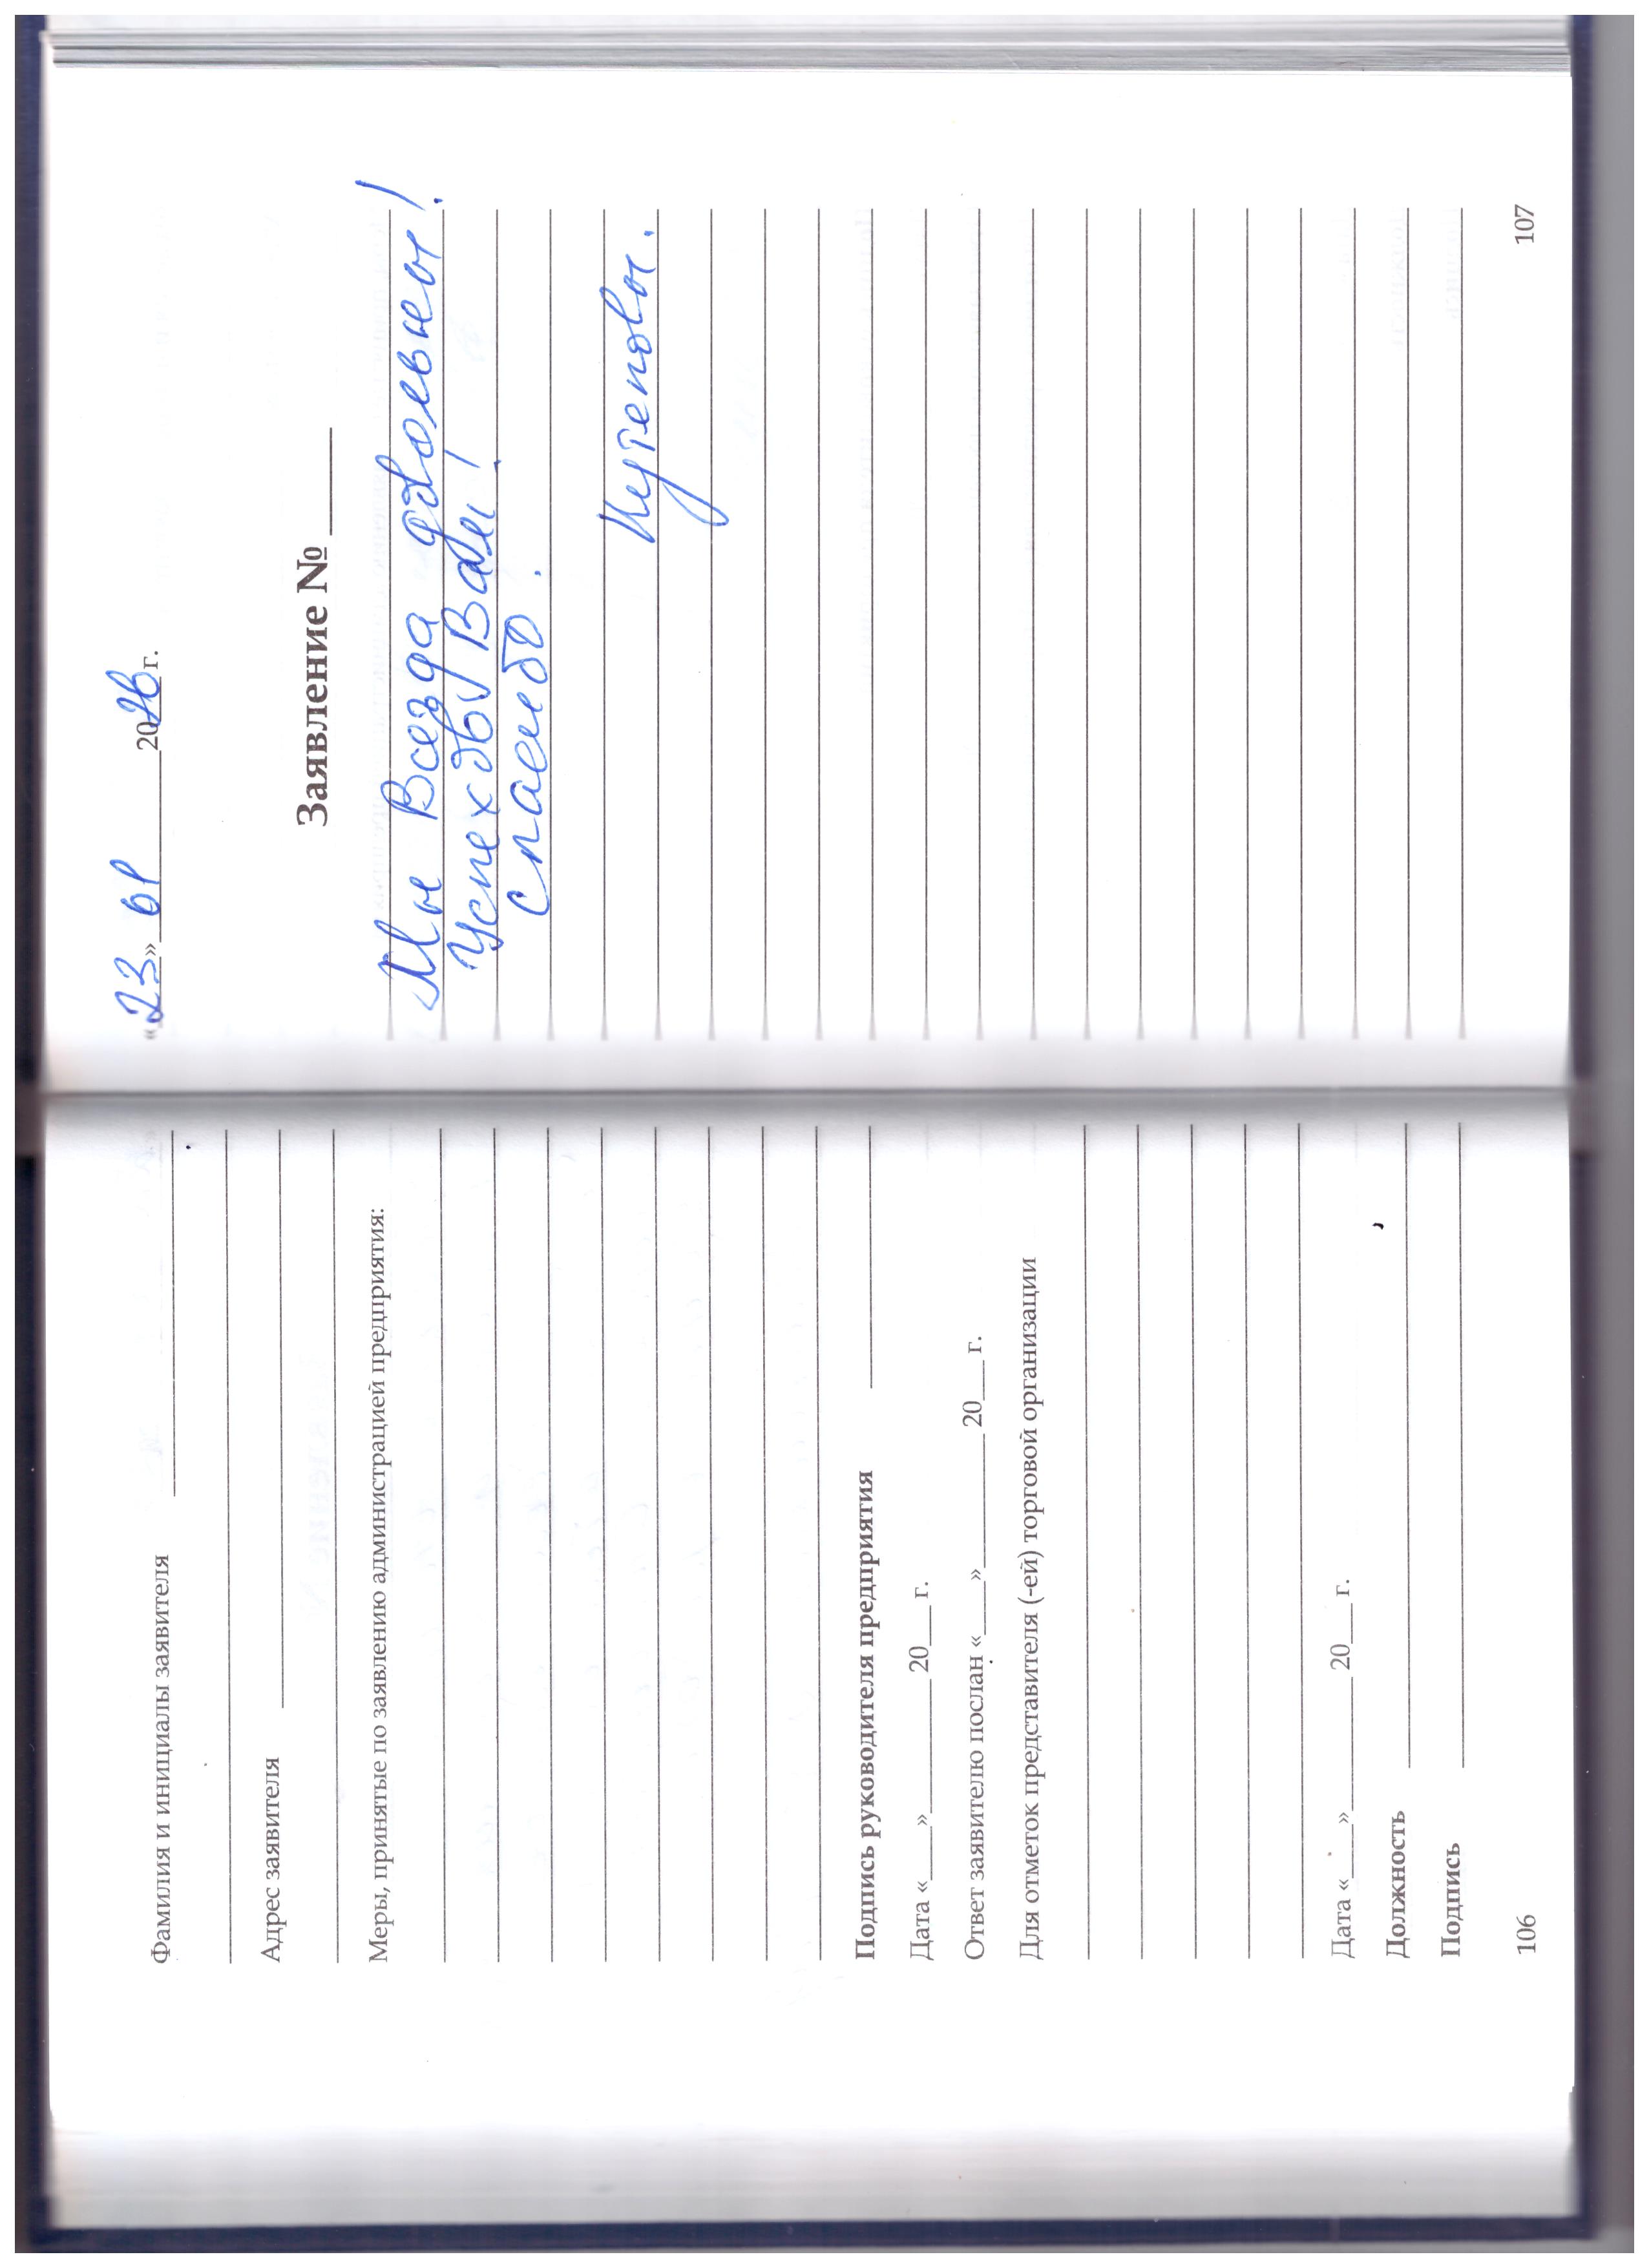 Фамилия и инициалы заявителя ____
Адрес заявителя ____
Меры, принятые по заявлению администрацией предприятия:
Подпись руководителя предприятия ____
Дата «___»________ 20___ г.
Ответ заявителю послан «___»________ 20___ г.
Для отметок представителя (-ей) торговой организации
Дата «___»________ 20___ г.
Должность ____
Подпись ____
106
«23» 01 2026 г.
Заявление № ____
Мы Всегда довольны!
Успехов Вам!
Спасибо.
Кутеповы.
107